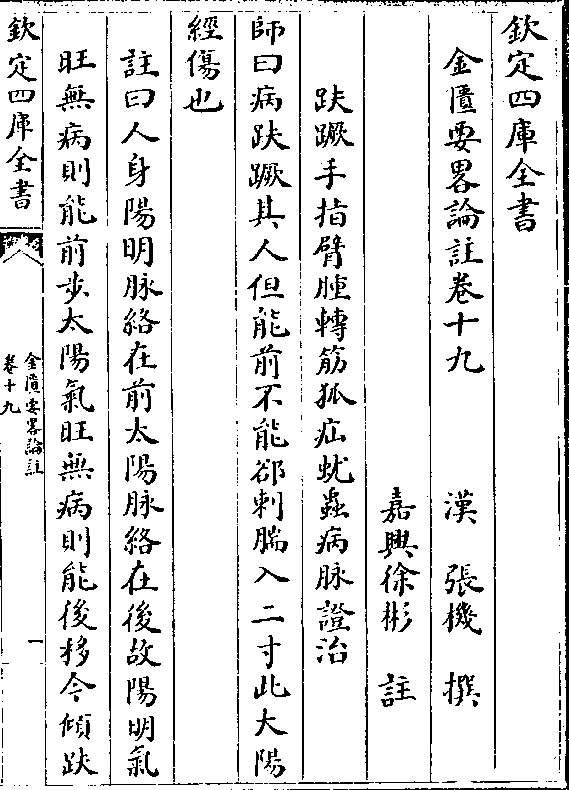 欽定四庫全書
金匱要畧論註卷十九
漢　張機　撰
嘉興徐彬　註
趺蹶手指臂腫轉筋狐疝蚘蟲病脉證治
師曰病趺蹶其人但能前不能郤刺腨入二寸此太陽
經傷也
註曰人身陽明脉絡在前太陽脉絡在後故陽明氣
旺無病則能前步太陽氣旺無病則能後移今傾趺
欽定四庫全書
金匱要畧論註
卷十九
一